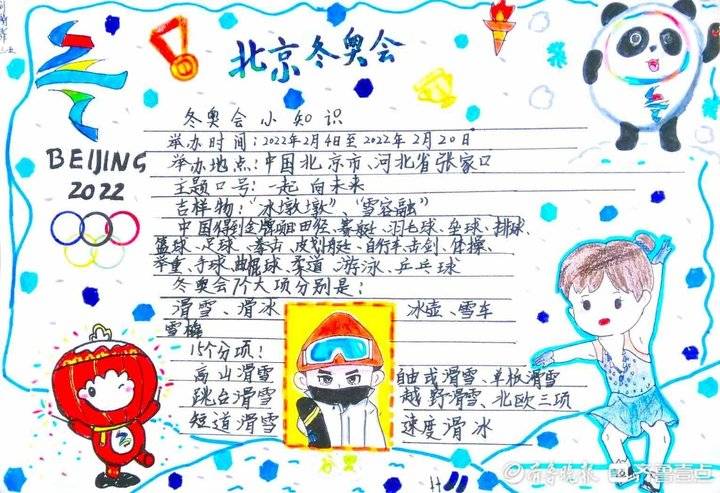 北京冬奥会
BEIJING
2022
冬奥会小知识
举办时间:2022年2月4日至2022年2月20日
举办地点:中国北京市、河北省张家口
主题口号:一起向未来
吉祥物:“冰墩墩”“雪容融”
中国得到金牌项目田径、赛艇、羽毛球、垒球、排球、
篮球、足球、拳击、皮划艇、自行车击剑、体操、
举重、手球、曲棍球、柔道、游泳、乒乓球
冬奥会7个大项分别是:
滑雪、滑冰 冰壶、雪车
雪橇
15个分项:
高山滑雪 自由式滑雪、单板滑雪
跳台滑雪 越野滑雪、北欧三项
短道滑雪 速度滑冰
齐鲁壹点